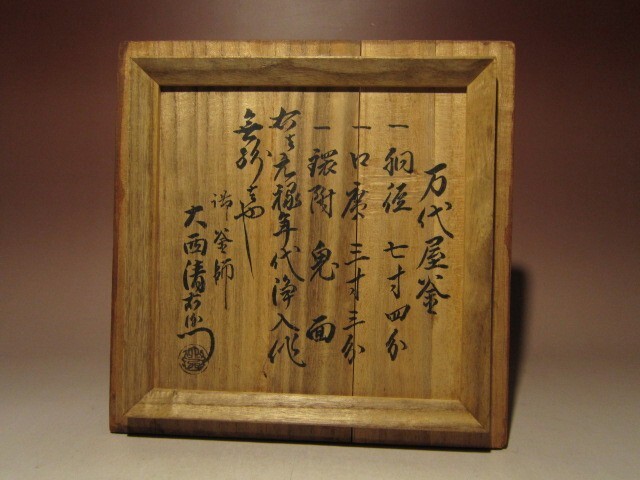 万代屋釜
一胴径 七寸四分
一口廣 三寸三分
一鐶附 鬼面
右者元禄年代浄入作
無紛者也
御釜師
大西清右衛門